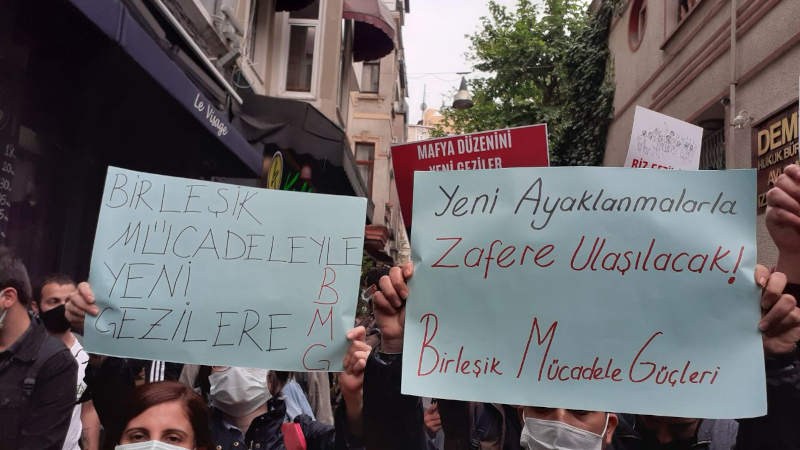 Le Visage
BİRLEŞİK
MÜCADELEYLE
YENİ
GEZİLERE
B
M
G
MAFYA DÜZENİNİ
YENİ GEZİLER
Yeni Ayaklanmalarla
Zafere Ulaşılacak!
Birleşik Mücadele Güçleri
HUKUK